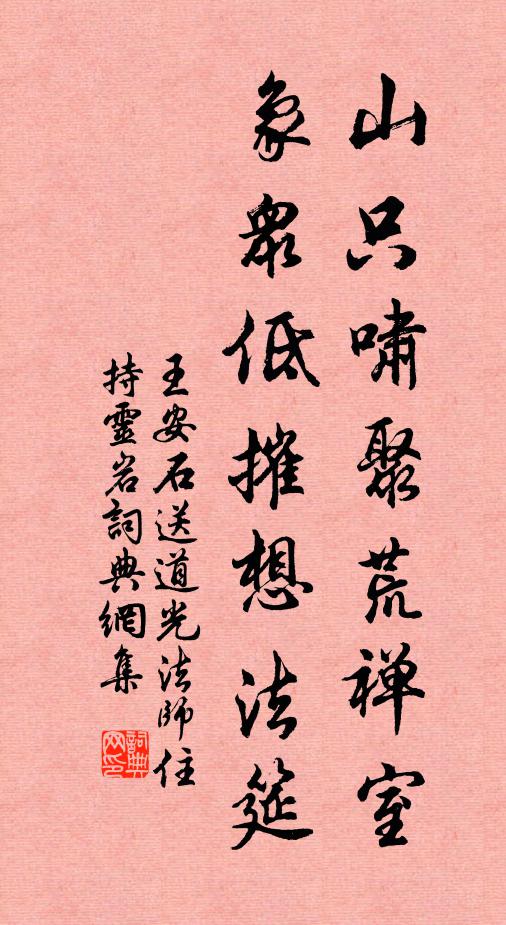 山只啸聚荒禅室
象眾低摧想法筵
王安石送道光法師住
持靈岩詞典網集
詞典網印